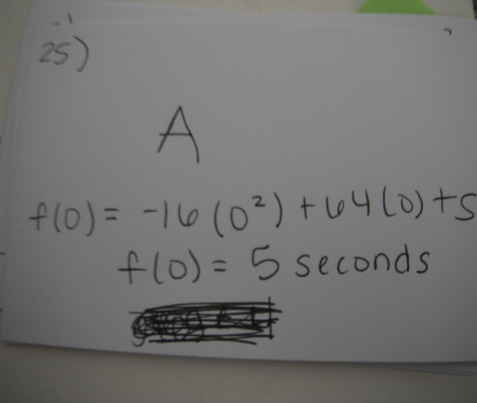 -1
25)
A
f(0) = -16(0²) + 64(0) + 5
f(0) = 5 seconds